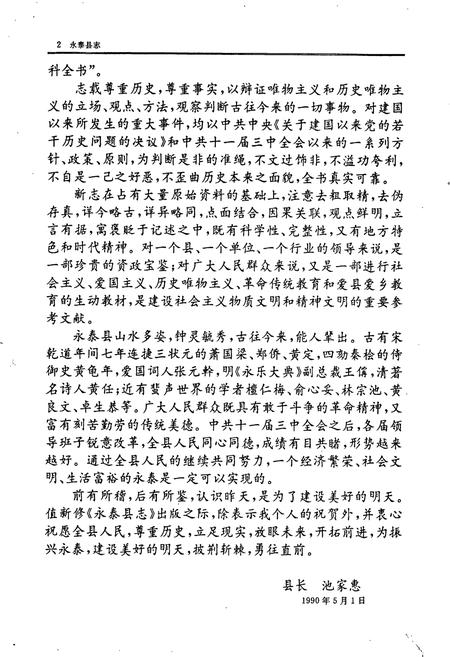 2 永泰县志
科全书”。
志载尊重历史，尊重事实，以辩证唯物主义和历史唯物主
义的立场、观点、方法，观察判断古往今来的一切事物。对建国
以来所发生的重大事件，均以中共中央《关于建国以来党的若
干历史问题的决议》和中共十一届三中全会以来的一系列方
针、政策、原则，为判断是非的准绳，不文过饰非，不溢功夸利，
不自是一己之好恶，不歪曲历史本来之面貌，全书真实可靠。
新志在占有大量原始资料的基础上，注意去粗取精，去伪
存真，详今略古，详异略同，点面结合，因果关联，观点鲜明，立
言有据，寓褒贬于记述之中，既有科学性、完整性，又有地方特
色和时代精神。对一个县、一个单位、一个行业的领导来说，是
一部珍贵的资政宝鉴；对广大人民群众来说，又是一部进行社
会主义、爱国主义、历史唯物主义、革命传统教育和爱县爱乡教
育的生动教材，是建设社会主义物质文明和精神文明的重要参
考文献。
永泰县山水多姿，钟灵毓秀，古往今来，能人辈出。古有宋
乾道年间七年连捷三状元的萧国梁、郑侨、黄定，四劾秦桧的侍
御史黄龟年，爱国词人张元幹，明《永乐大典》副总裁王偁，清著
名诗人黄任；近有蜚声世界的学者檀仁梅、俞心妥、林宗池、黄
良文、卓生恭等。广大人民群众既具有敢于斗争的革命精神，又
富有刻苦勤劳的传统美德。中共十一届三中全会之后，各届领
导班子锐意改革，全县人民同心同德，成绩有目共睹，形势越来
越好。通过全县人民的继续共同努力，一个经济繁荣、社会文
明、生活富裕的永泰是一定可以实现的。
前有所稽，后有所鉴，认识昨天，是为了建设美好的明天。
值新修《永泰县志》出版之际，除表示我个人的祝贺外，并衷心
祝愿全县人民，尊重历史，立足现实，放眼未来，开拓前进，为振
兴永泰，建设美好的明天，披荆斩棘，勇往直前。
县长 池家惠
1990年5月1日